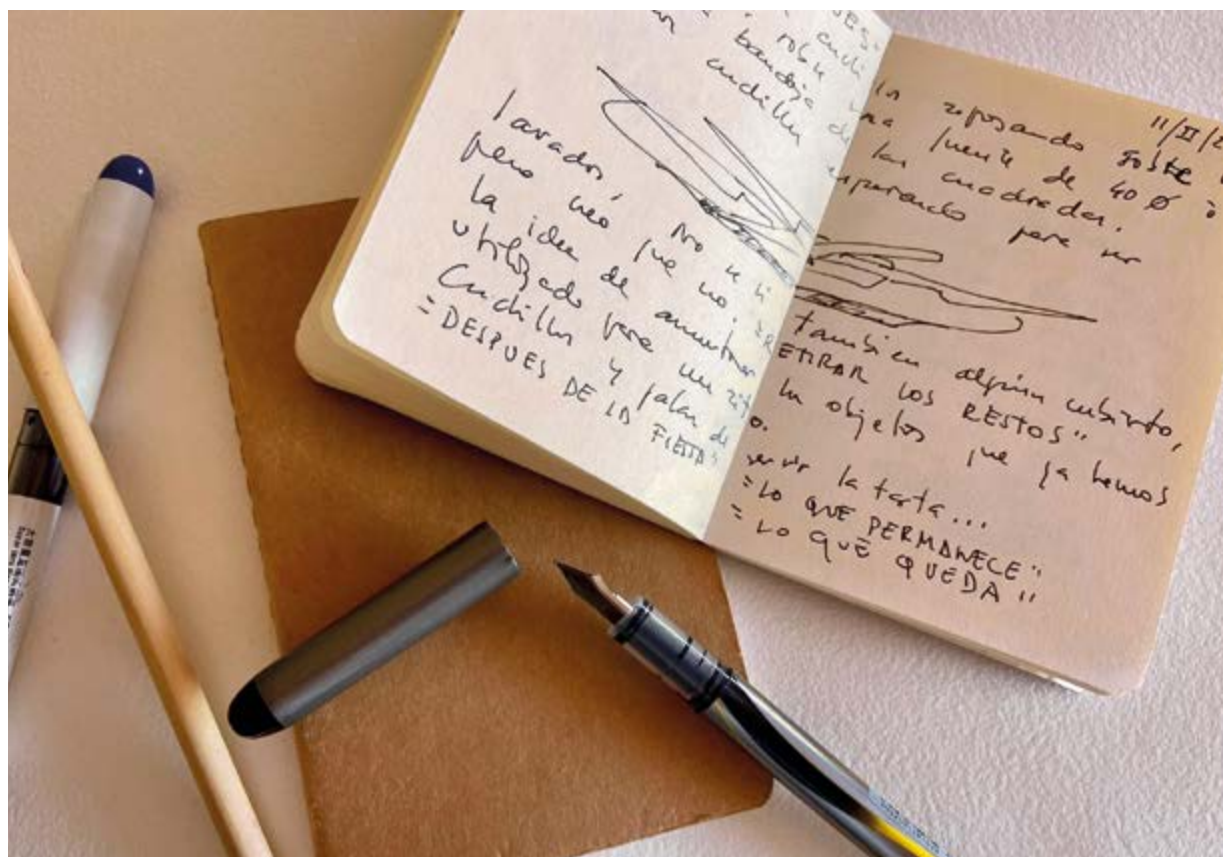 bandeja
cuchillos
lavados, No se si
pero creo que no. "R
la idea de amontonar
utilizado para un
Cuchillos y palas de
"DESPUES DE LA FIESTA"
11/II/2
reposando sobre
una fuente de 40 Ø o
las cuadradas.
esperando para ser
también algún cubierto,
ETIRAR LOS RESTOS"
los objetos que ya hemos
o.
servir la tarta...
"LO QUE PERMANECE"
"LO QUE QUEDA"